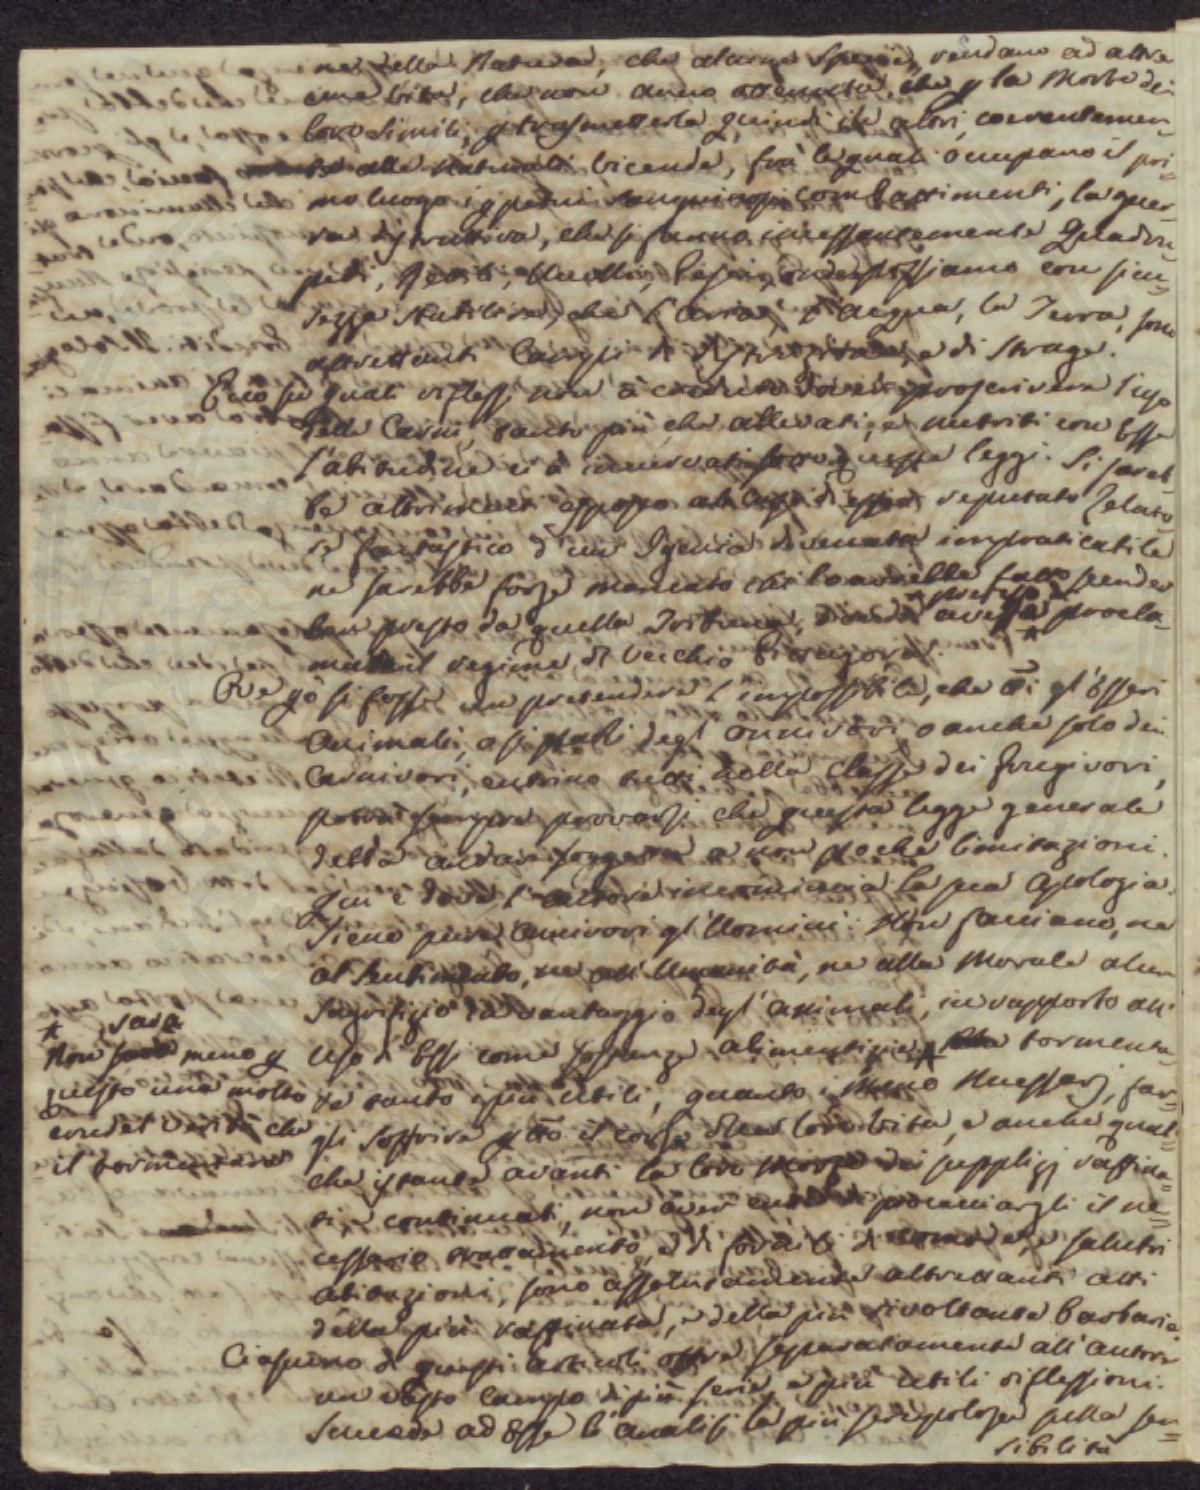 ne della Natura, che alcune Specie, rendano ad altre
una vita, che non anno ottenuta, che p la Morte dei
loro simili, p trasmetterla quindi ad altri, coerentemen-
te alle naturali vicende, frà le quali occupano il pri-
mo luogo i combattimenti, la guer-
ra distruttiva, che si fanno incessantemente Quadru-
pedi, Rettili, Uccelli, Pesci, onde possiamo con sicu-
rezza stabilire, che l'aria, l'acqua, la Terra, sono
altrettanti Campi di distruzione, e di strage.
Ecco su quali riflessi non à creduto dover proscrivere l'uso
delle Carni, tanto più che allevati, e nutriti con esse
l'abitudine ci à sotto queste leggi. Si sareb-
be altrimenti reputato Zelato-
re fantastico d'un Igenia divenuta impraticabile
ne sarebbe forse mancato chi lo avrebbe fatto scender
ben presto da quella Tribuna, avesse procla-
mato il regime di Vecchio
Che se pò si fosse un pretendere l'impossibile, che tti gl'Esseri
Animali, degl'onnivori o anche solo dei
Carnivori, entrino tutti nella classe dei frugivori,
potrà sempre provarsi che questa legge generale
debba andar soggetta a non poche limitazioni.
Qui è dove l'autore incomincia la sua Apologia.
Sieno pure Carnivori gl'Uomini. Non facciano, ne
al Sentimento, ne all'Umanità, ne alla Morale alcun
Sagrifizio a vantaggio degl'animali, in rapporto all'
uso d'Essi come sostanze alimentizie * tormenta-
re tanto più utili, quanto meno Necessarj, far-
gli soffrire p tto il corso della loro vita, e anche qual-
che istante avanti la loro morte dei supplizj raffina-
ti e continuati, non aver cura di procacciargli il ne-
cessario trattamento, e di fornirli di comode, e salubri
abitazioni, sono assolutamente altrettanti atti
della più raffinata, e della più rivoltante barbarie.
Ciascuno di questi articoli offre separatamente all'autore
un vasto Campo di più serie, e più utili riflessioni.
Succede ad Esse l'analisi la più scrupolosa sulla sen-
sibilità
* sarà
Non meno p
questo una molto
crudel verità che
il tormentare